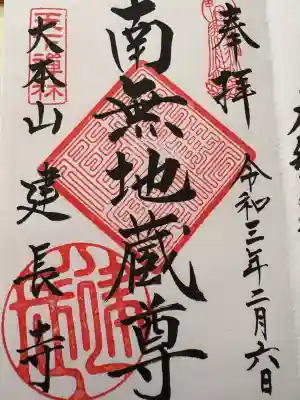 奉拝
令和三年二月六日
南無地蔵尊
大本山建長寺